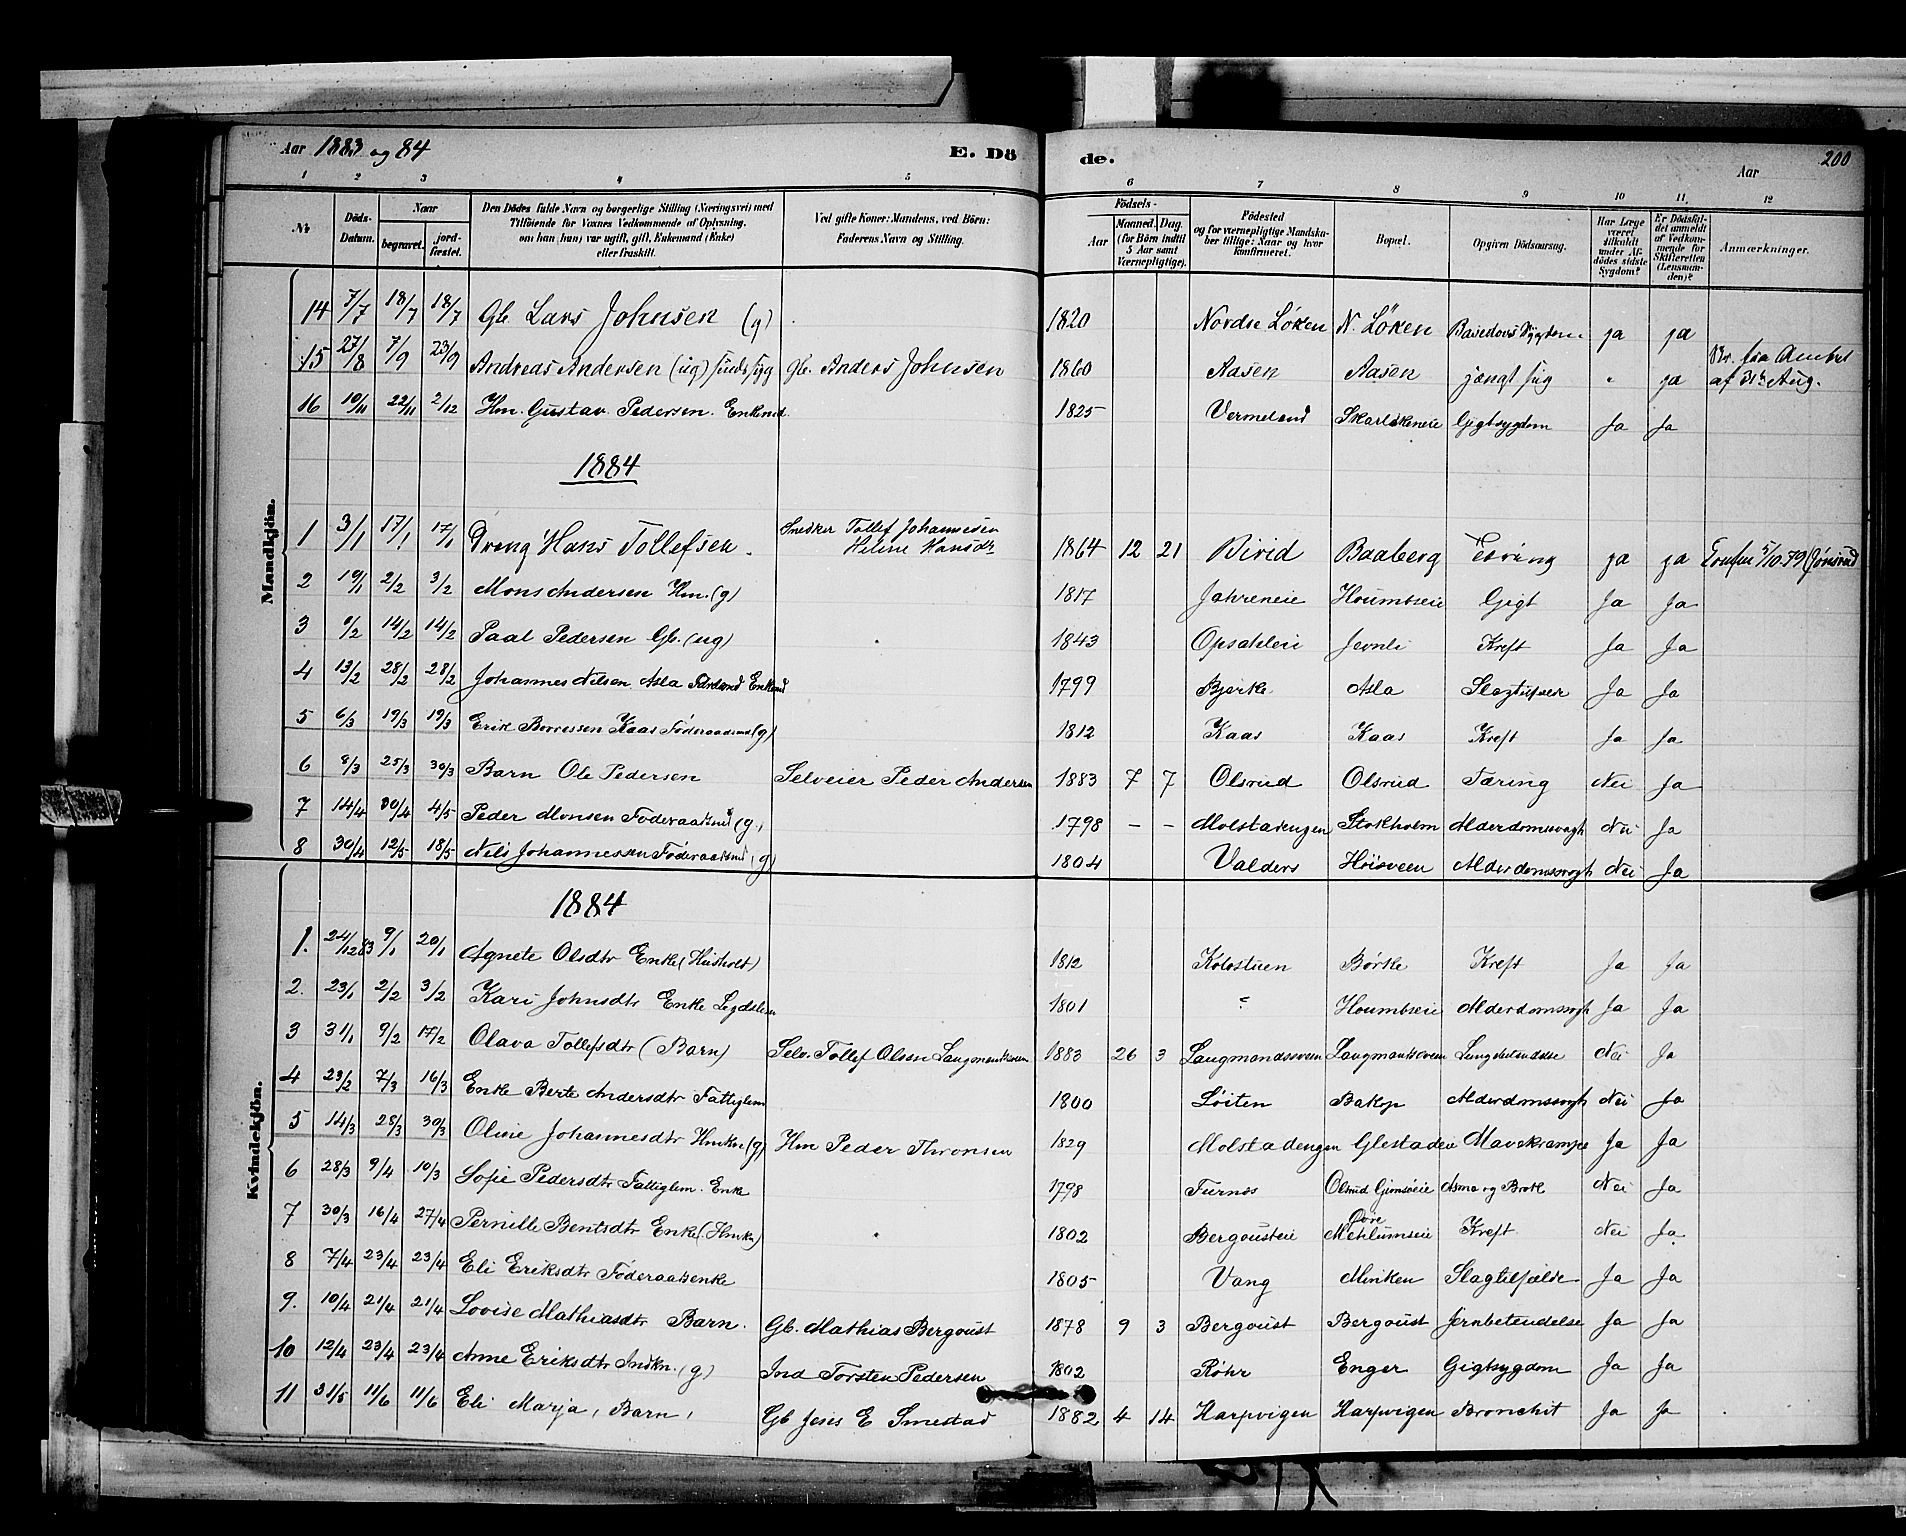 Aar 1883 og 84
E. Dö
de.
Aar
200
1 2 3 4 5 6 7 8 9 10 11. 12
№
Döds-Datum.
Naar
begravet.
jord-fæstet.
Den Dödes fulde Navn og borgerlige Stilling (Næringsvei) med
Tilföiende for Voxnes Vedkommende af Oplysning,
om han (hun) var ugift, gift, Enkemand (Enke)
eller fraskilt.
Ved gifte Koner: Mandens, ved Börn:
Faderens Navn og Stilling.
Födsels-
Aar
Maaned. Dag.
(for Börn indtil
5 Aar samt
Værnepligtige).
Födested
og for værnepligtige Mandska-
ber tillige: Naar og hvor
konfirmeret.
Bopæl.
Opgiven Dödsaarsag.
Har Læge
været
tilkaldt
under Af-
dödes sidste
Sygdom?
Er Dödsfal-
det anmeldt
af Vedkom-
mende for
Skifteretten
(Lensman-
den)?
Anmærkninger.
Mandkjön.
14 7/7 18/7 18/7 Gb. Lars Johnsen (g) 1820 Nordre Löken N. Löken Basedows Sygdom ja ja
15 27/8 7/9 23/9 Andreas Andersen (ug) sindssyg Gb. Anders Johnsen 1860 Aasen Aasen ja Br. fra Amtet
af 31te Aug.
16 10/11 22/11 2/12 Hm. Gustav Pedersen. Enkemd. 1825 Vermeland Gigtsygdom Ja Ja
1884
1 3/1 17/1 17/1 Dreng Hans Tollefsen. Snedker Tollef Johannesen
Helene Hansdr
1864 12 21 Birid Baaberg Tæring ja ja 5/10.79
2 19/1 2/2 3/2 Mons Andersen Hm. (g) 1817 Jahreneie Houmbseie Gigt Ja Ja
3 9/2 14/2 14/2 Paal Pedersen Gb. (ug) 1843 Opsahleie Jevnli Kreft Ja Ja
4 13/2 28/2 28/2 Johannes Nilsen Asla Enkemd 1799 Bjerke Asla Ja Ja
5 6/3 19/3 19/3 Erik Borressen Kaas Föderaadsmd (g) 1812 Kaas Kaas Kreft Ja Ja
6 8/3 25/3 30/3 Barn Ole Pedersen Selveier Peder Andersen 1883 7 7 Olsrud Olsrud Tæring Nei Ja
7 14/4 20/4 4/5 Peder Monsen Föderaadsmd (g) 1798 – – Molstadengen Stokholm Alderdomssvagh Nei Ja
8 30/4 12/5 18/5 Nils Johannessen Föderaadsmd (g) 1804 Valders Hoisveen Alderdomssvagh Nei Ja
Kvindekjön.
1884
1. 24/12 83 9/1 20/1 Agnete Olsdtr Enke (Husholt) 1812 Kolostuen Börke Kreft Ja Ja
2. 23/1 2/2 3/2 Kari Johnsdtr Enke Legdslem 1801 ? Houmbseie Alderdomssvgh Ja Ja
3 31/1 9/2 17/2 Olava Tollefsdtr (Barn) Selv. Tollef Olsen Laugmandsveen 1883 26 3 Laugmandssveen Laugmandsveen Lungebetændelse Nei Ja
4 23/2 7/3 16/3 Enke Berte Andersdtr Fattiglem 1800 Löiten Bakop Alderdomssvagh Nei Ja
5 14/3 28/3 30/3 Oline Johannesdtr Hmkn (g) Hm Peder Thronsen 1829 Molstadengen Glestaden Mavekrampe Ja Ja
6 28/3 9/4 10/3 Sofie Pedersdtr Fattiglem. Enke 1798 Furnes Olsrud Gimsöeie Asma og Brok Nei Ja
7 30/3 16/4 27/4 Pernille Bentsdtr Enke (Hmkn) 1802 Bergousteie Övre Mehlumseie Kreft Nei Ja
8 7/4 23/4 23/4 Eli Eriksdtr Föderaadsenke 1805 Vang Minken Slagtilfælde Ja Ja
9. 10/4 21/4 21/4 Lovise Mathiasdtr Barn. Gb. Mathias Bergoust 1878 9 3 Bergoust Bergoust Jernbetendelse Ja Ja
10 12/4 23/4 23/4 Anne Eriksdtr Indkn. (g) Ind Torsten Pedersen 1802 Röhr Enger Gigtsygdom Ja Ja
11 31/5 11/6 11/6 Eli Marja, Barn, Gb Jens E Smestad 1882 4 14 Harpvigen Harpvigen Bronchit Ja Ja